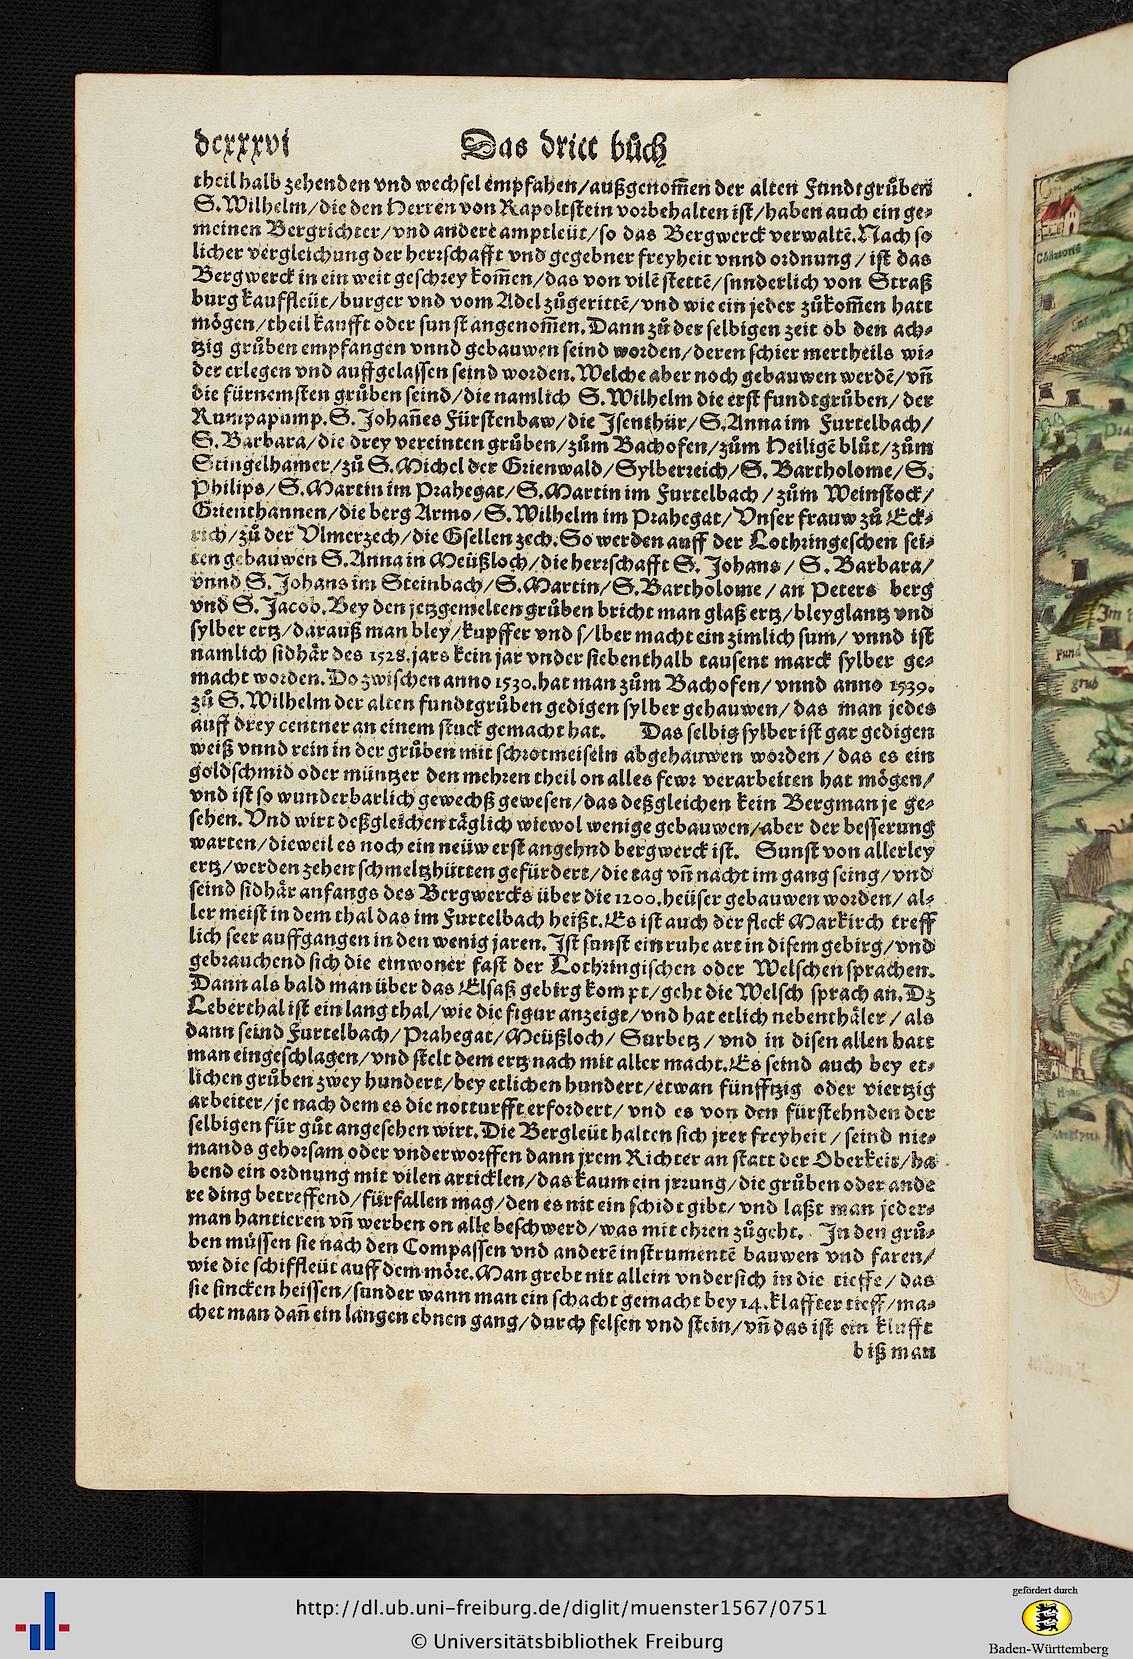 dcxxxvi
Das dritt bůch
theil halb zehenden vnd wechsel empfahen/außgenom̃en der alten Fundtgrůben
S. Wilhelm/die den Herren von Rapoltstein vorbehalten ist/haben auch ein ge⸗
meinen Bergrichter/vnd andere amptleüt/so das Bergwerck verwaltẽ. Nach so
licher vergleichung der herrschafft vnd gegebner freyheit vnnd ordnung/ist das
Bergwerck in ein weit geschrey kom̃en/das von vilẽ stettẽ/sunderlich von Straß
burg kauffleüt/burger vnd vom Adel zůgerittẽ/vnd wie ein jeder zůkom̃en hatt
mögen/theil kaufft oder sunst angenom̃en. Dann zů der selbigen zeit ob den ach⸗
tzig grůben empfangen vnnd gebauwen seind worden/deren schier mertheils wi⸗
der erlegen vnd auffgelassen seind worden. Welche aber noch gebauwen werdẽ/vñ
die fürnemsten grůben seind/die namlich S. Wilhelm die erst fundtgrůben/der
Rumpapump. S. Johañes Fürstenbaw/die Isenthür/S. Anna im Furtelbach/
S. Barbara/die drey vereinten grůben/zům Bachofen/zům Heiligẽ blůt/zům
Stingelhamer/zů S. Michel der Grienwald/Sylberreich/S. Bartholome/S.
Philips/S. Martin im Prahegat/S. Martin im Furtelbach/zům Weinstock/
Grienthannen/die berg Armo/S. Wilhelm im Prahegat/Vnser frauw zů Eck⸗
rich/zů der Vlmerzech/die Gsellen zech. So werden auff der Lothringeschen sei⸗
ten gebauwen S. Anna in Meüßloch/die herrschafft S. Johans/S. Barbara/
vnnd S. Johans im Steinbach/S. Martin/S. Bartholome/an Peters berg
vnd S. Jacob. Bey den jetzgemelten grůben bricht man glaß ertz/bleyglantz vnd
sylber ertz/darauß man bley/kupffer vnd s/lber macht ein zimlich sum/vnnd ist
namlich sidhär des 1528. jars kein jar vnder siebenthalb tausent marck sylber ge⸗
macht worden. Do zwischen anno 1530. hat man zům Bachofen/vnnd anno 1539.
zů S. Wilhelm der alten fundtgrůben gedigen sylber gehauwen/das man jedes
auff drey centner an einem stuck gemacht hat. Das selbig sylber ist gar gedigen
weiß vnnd rein in der grůben mit schrotmeiseln abgehauwen worden/das es ein
goldschmid oder müntzer den mehren theil on alles fewr verarbeiten hat mögen/
vnd ist so wunderbarlich gewechß gewesen/das deßgleichen kein Bergman je ge⸗
sehen. Vnd wirt deßgleichen täglich wiewol wenige gebauwen/aber der besserung
warten/dieweil es noch ein neüw erst angehnd bergwerck ist. Sunst von allerley
ertz/werden zehen schmeltzhütten gefürdert/die tag vñ nacht im gang seing/vnd
seind sidhär anfangs des Bergwercks über die 1200. heüser gebauwen worden/al⸗
ler meist in dem thal das im Furtelbach heißt. Es ist auch der fleck Markirch treff
lich seer auffgangen in den wenig jaren. Ist sunst ein ruhe art in disem gebirg/vnd
gebrauchend sich die einwoner fast der Lothringischen oder Welschen sprachen.
Dann als bald man über das Elsaß gebirg kompt/geht die Welsch sprach an. Dz
Leberthal ist ein lang thal/wie die figur anzeigt/vnd hat etlich nebenthäler/als
dann seind Furtelbach/Prahegat/Meüßloch/Surbetz/vnd in disen allen hatt
man eingeschlagen/vnd stelt dem ertz nach mit aller macht. Es seind auch bey et⸗
lichen grůben zwey hundert/bey etlichen hundert/etwan fünfftzig oder viertzig
arbeiter/je nach dem es die notturfft erfordert/vnd es von den fürstehnden der
selbigen für gůt angesehen wirt. Die Bergleüt halten sich jrer freyheit/seind nie⸗
mands gehorsam oder vnderworffen dann jrem Richter an statt der Oberkeit/ha
bend ein ordnung mit vilen articklen/das kaum ein jrrung/die grůben oder ande
re ding betreffend/fürfallen mag/den es nit ein schidt gibt/vnd laßt man jeder⸗
man hantieren vñ werben on alle beschwerd/was mit ehren zůgeht. In den grů⸗
ben müssen sie nach den Compassen vnd anderẽ instrumentẽ bauwen vnd faren/
wie die schiffleüt auff dem möre. Man grebt nit allein vndersich in die tieffe/das
sie sincken heissen/sunder wann man ein schacht gemacht bey 14. klaffter tieff/ma⸗
chet man dañ ein langen ebnen gang/durch felsen vnd stein/vñ das ist ein klufft
biß man
Im
Fund
grub
http://dl.ub.uni-freiburg.de/diglit/muenster1567/0751
© Universitätsbibliothek Freiburg
gefördert durch
Baden-Württemberg